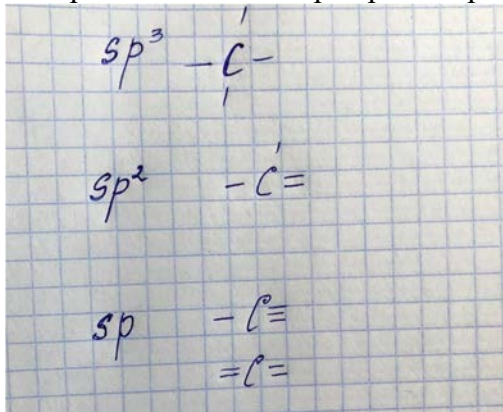 sp³ -C-
sp² -C=
sp -C≡
=C=